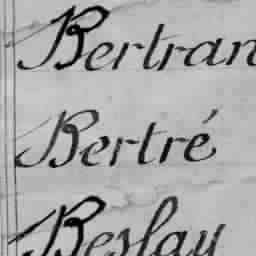 Bertran
Bertré
Beslay